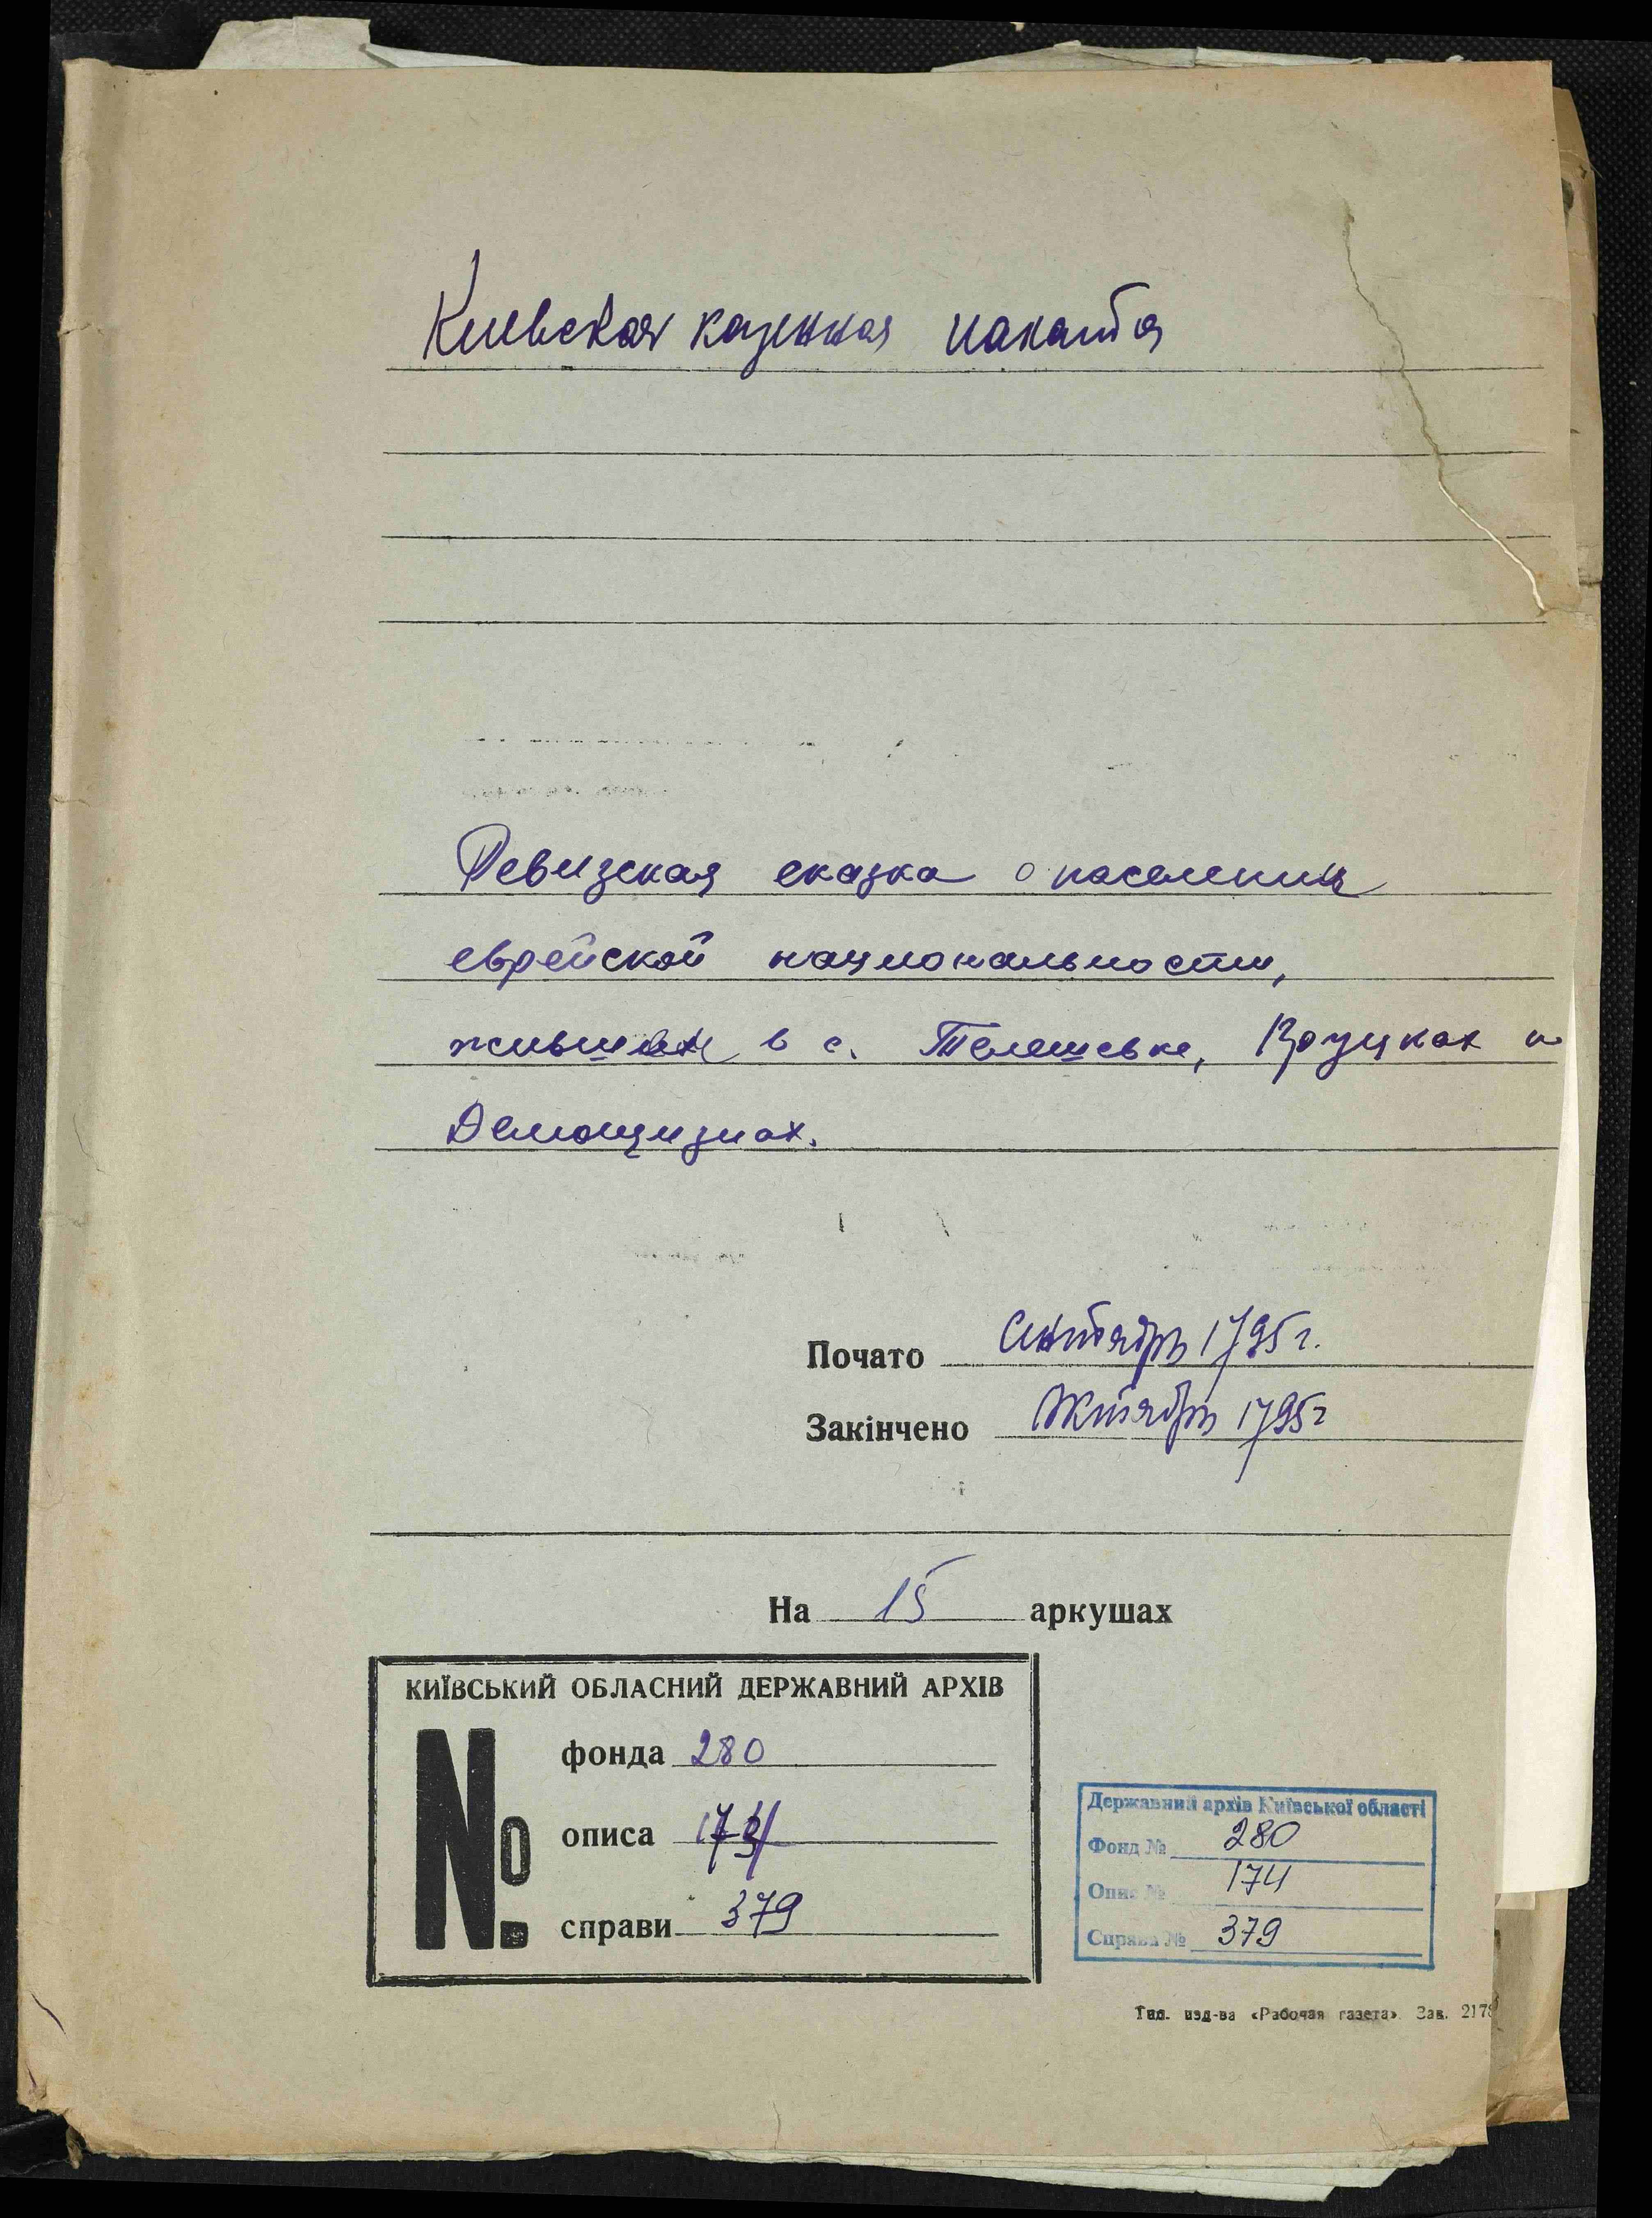 Киевская казенная палата
Ревизская сказка о населении
еврейской национальности,
живших в с. Телешевке,
Почато Сентябрь 1795 г.
Закінчено Октябрь 1795 г
На 15 аркушах
КИЇВСЬКИЙ ОБЛАСНИЙ ДЕРЖАВНИЙ АРХІВ
№
фонда 280
описа 174
справи 379
Державний архів Київської області
Фонд № 280
Опис № 174
Справа № 379
Тип. изд-ва «Рабочая газета» Зак. 2178